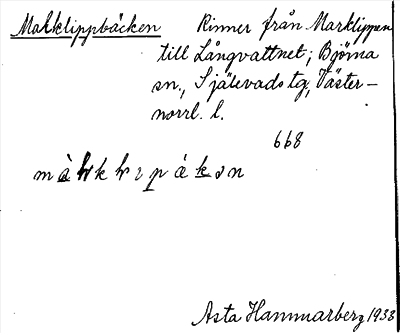 Malklippbäcken Rinner från Marklippen
till Långvattnet; Björna
sn., Själevads tg, Väster-
norrl. l.
668
Asta Hammarberg 1938